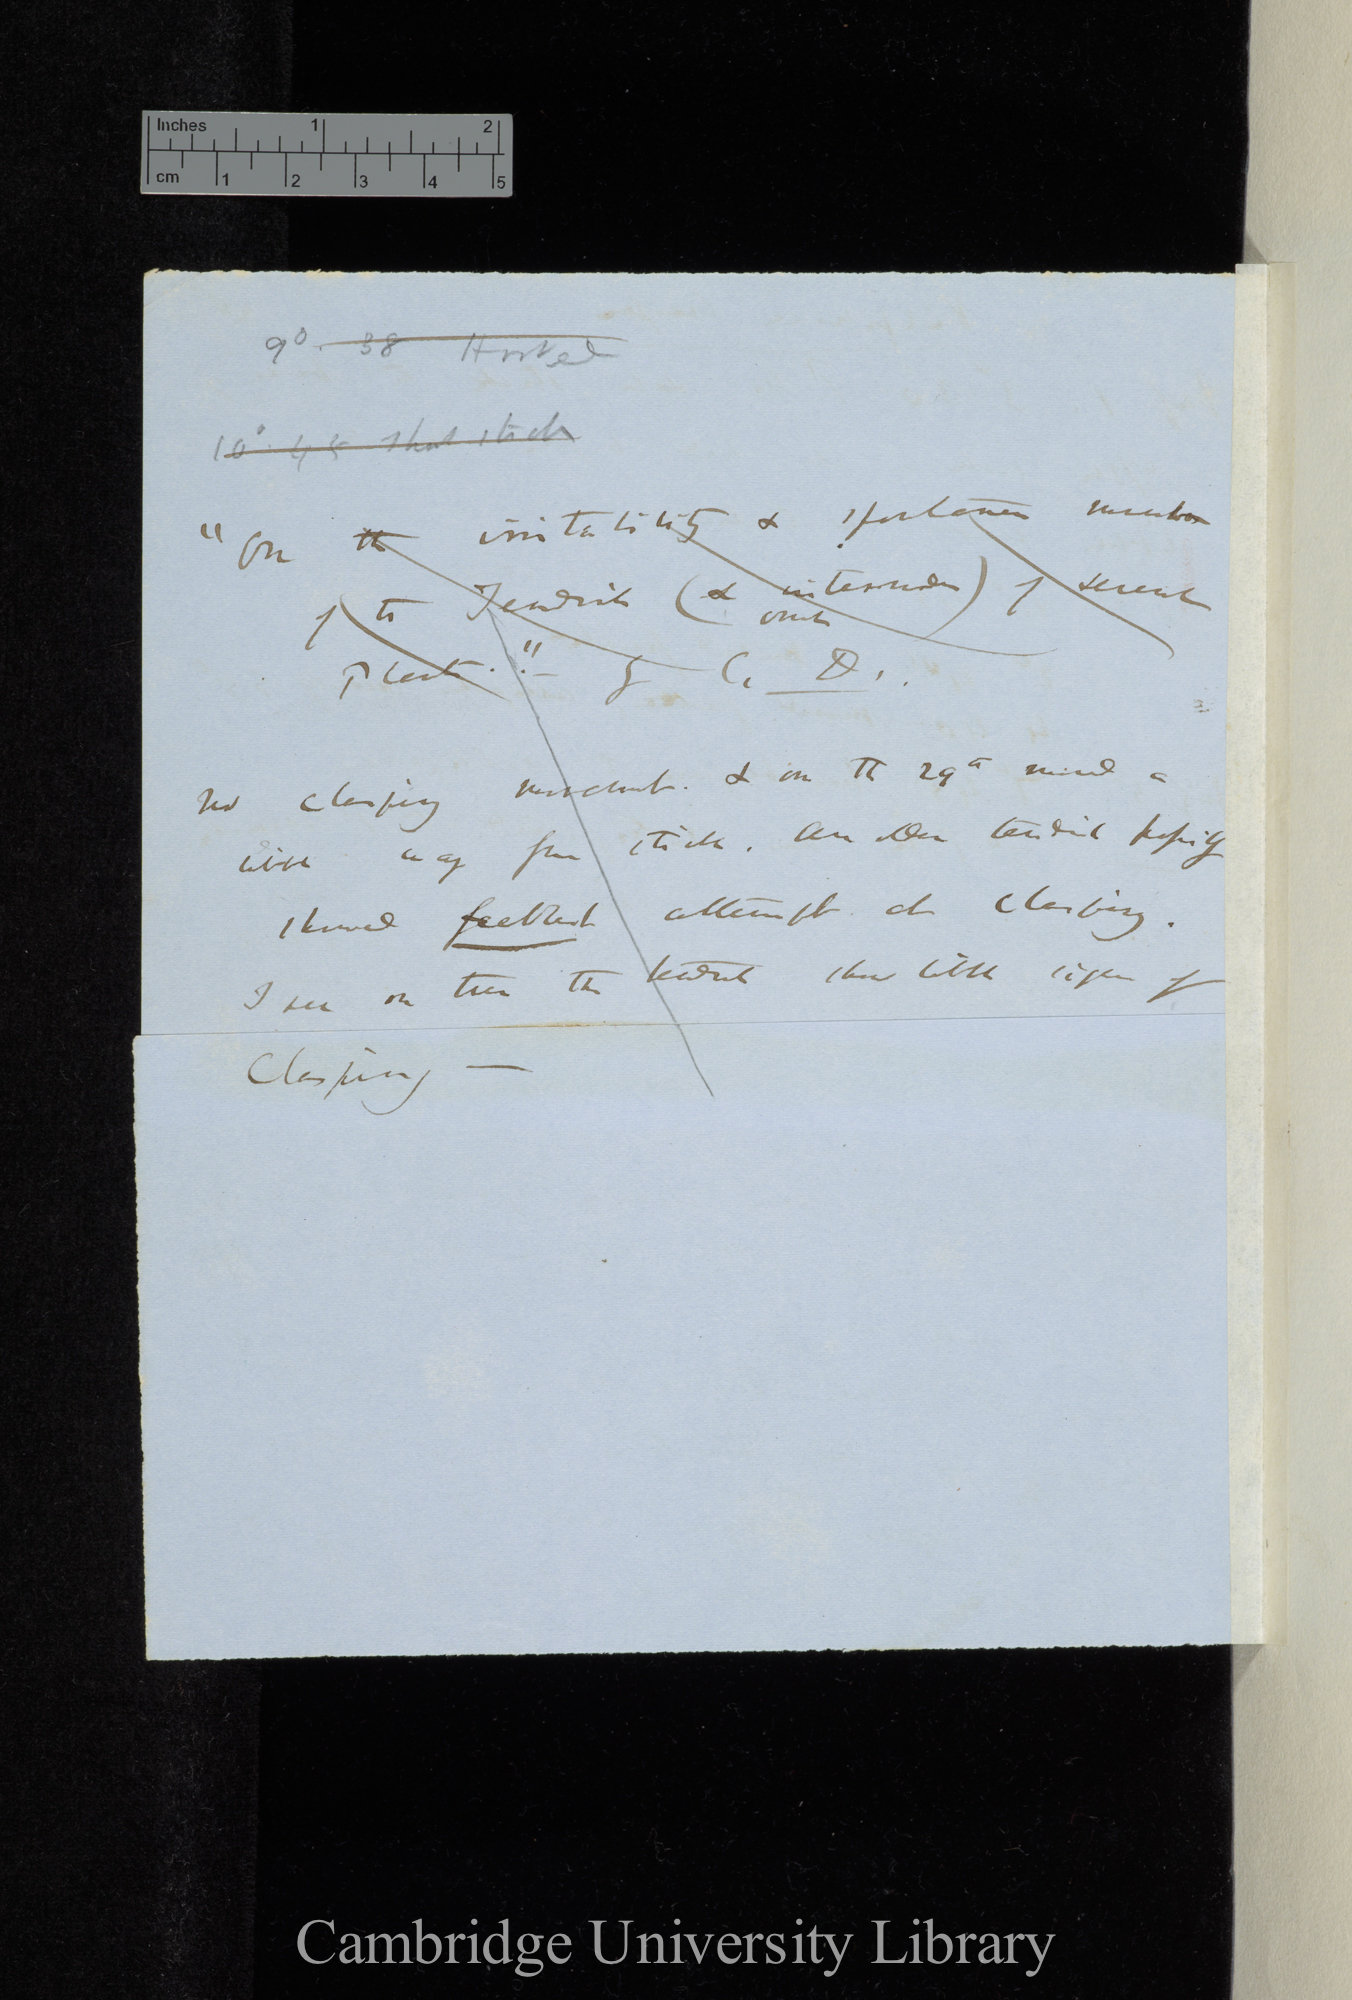 Inches 1 2
cm 1 2 3 4 5
9° . 38 Hooked
10° . 45 that stick
"On the irritability & spontaneous movement
of the Tendrils (& internodes) of several
Plants." by C. D.
no clasping movement. & on the 29th moved a
little away from stick. An other tendril
showed feeblest attempt at clasping.
I see on tree the tendrils show little signs of
Clasping —
Cambridge University Library